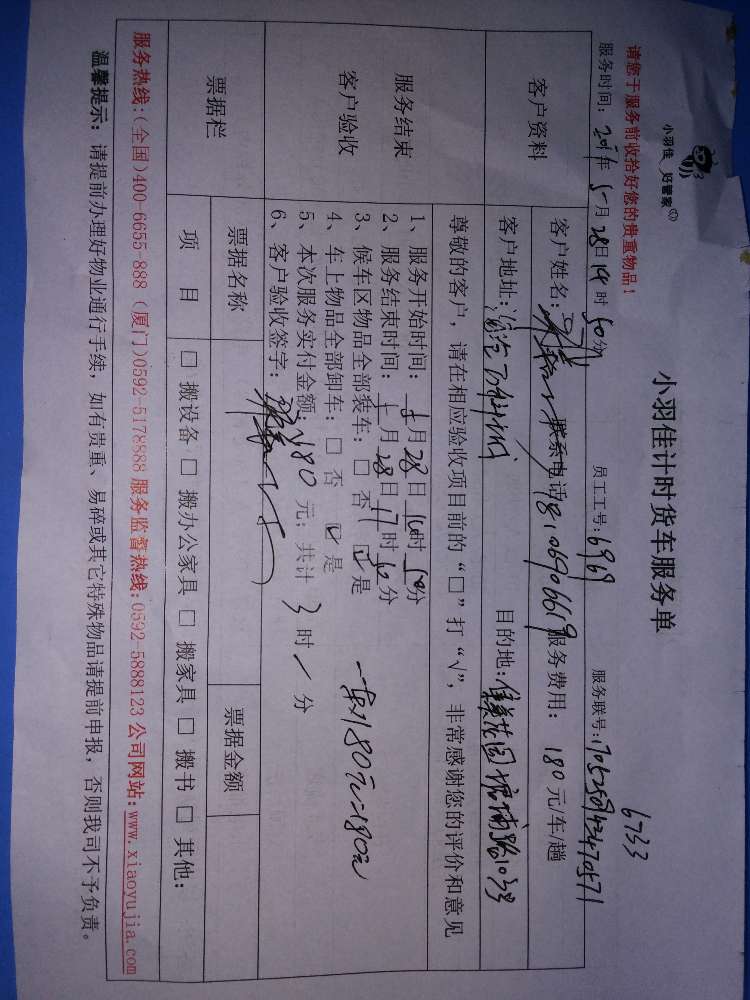 小羽佳 好管家
小羽佳计时货车服务单
6733
请您于服务前收拾好您的贵重物品！
服务时间：2017年5月28日14时50分 员工工号：6969 服务联号：
客户资料
客户姓名： 联系电话 服务费用：180元/车/趟
客户地址： 目的地：
尊敬的客户，请在相应验收项目前的“□”打“√”，非常感谢您的评价和意见
服务结束
客户验收
1、服务开始时间：5月28日 时 分
2、服务结束时间： 月28日17时 分
3、候车区物品全部装车：□ 否 ☑ 是
4、车上物品全部卸车：□ 否 ☑ 是
5、本次服务实付金额：180元；共计3时/分
一车180元=180元
6、客户验收签字：
票据栏
票据名称 票据金额
项 目 □ 搬设备 □ 搬办公家具 □ 搬家具 □ 搬书 □ 其他：
服务热线：(全国)400-6655-888 (厦门)0592-5178888 服务监督热线：0592-5888123 公司网站：www.xiaoyujia.com
温馨提示：请提前办理好物业通行手续，如有贵重、易碎或其它特殊物品请提前申报，否则我司不予负责。